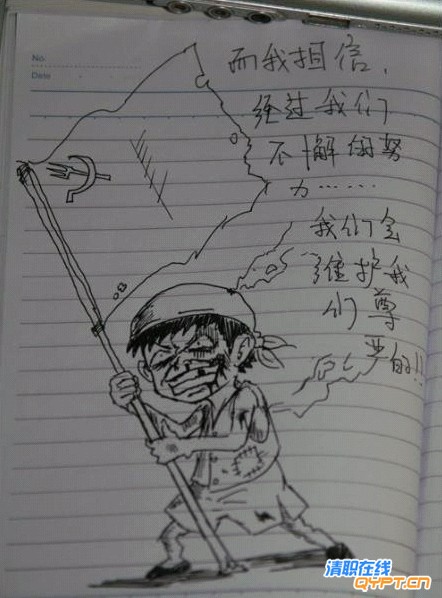 No.
Date
而我相信,
经过我们
不懈的努
力……
我们会
维护我
们尊
严的!!
清职在线
QYPT.CN